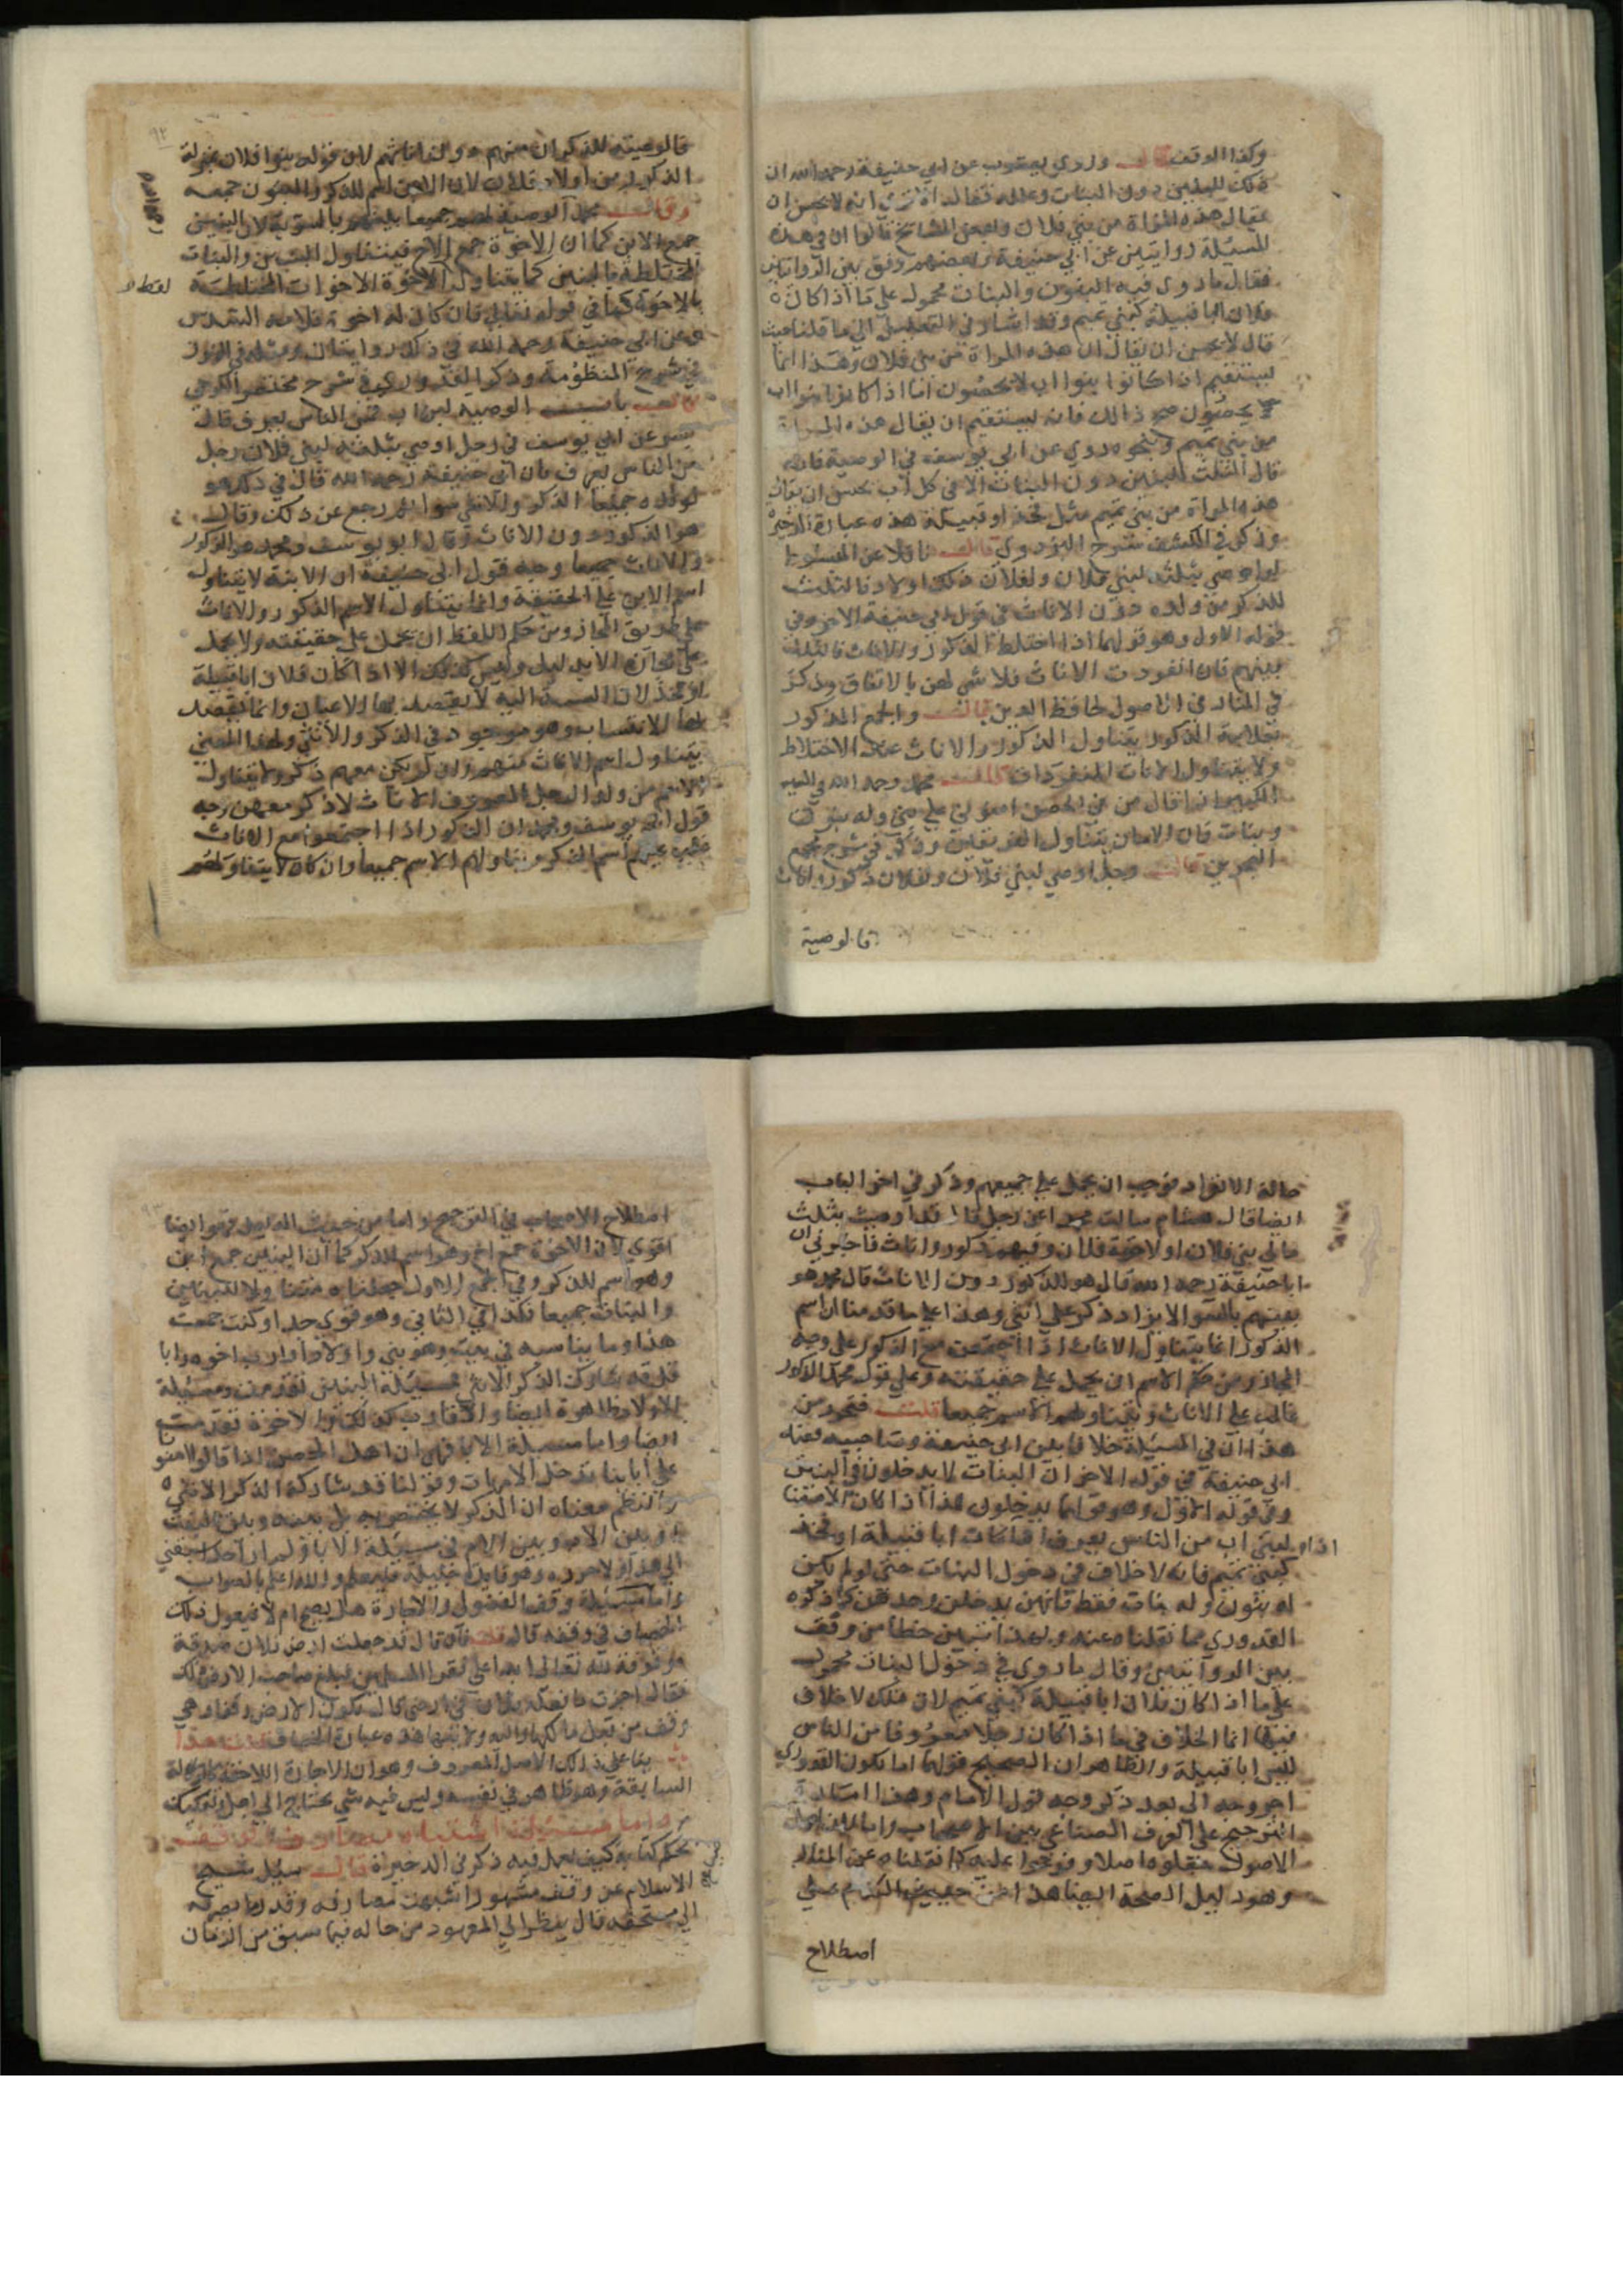 وكذا الوقف قالت وروي يعقوب عن ابي حنيفة رحمه الله ان
ذلك للبنين دون البنات وعلله فقال الا ترى انه لا يحسن ان
يقال هذه المراة من بني فلان وبعض المشايخ قالوا ان في هذه
المسئلة روايتين عن ابي حنيفة وبعضهم وفق بين الروايتين
فقال ما روي فيه البنون والبنات محمول على ما اذا كان
فلان ابا قبيلة كبني تميم وقد اشار في التعليل الى ما قلنا حيث
قال لا يحسن ان يقال ان هذه المراة من بني فلان وهذا انما
يستقيم ان كانوا بنوا اب لا يحصون اما اذا كانوا بنوا اب
يحصون ذلك فانه يستقيم ان يقال هذه المراة
من بني تميم ونحوه روي عن ابي يوسف في الوصية فانه
قال الثلث للبنين دون البنات الا في كل اب يحسن ان يقال
هذه المراة من بني تميم مثل فخذ او قبيلة هذه عبارة الذخيرة
وذكر في الكشف شرح البزدوي قالت ناقلا عن المبسوط
لو اوصي بثلثه لبني فلان ولفلان ذلك اولاد فالثلث
للذكر من ولده دون الاناث في قول ابي حنيفة الاخر وفي
قوله الاول وهو قولهما اذا اختلط الذكور والاناث فالثلث
بينهم فان انفردت الاناث فلا شي لهن بالاتفاق وذكر
في المنار في الاصول لحافظ الدين قالت والجمع المذكور
بعلامة الذكور يتناول الذكور والاناث عند الاختلاط
ولا يتناول الاناث المنفردات قالت محمد رحمه الله في السير
الكبير اذا قال من في الحصن امنوني على بني وله بنون
وبنات فان الامان يتناول الفريقين وذكر في شرح مجمع
البحرين قالت رجل اوصي لبني فلان ولفلان ذكور واناث
فالوصية
فالوصية للذكران منهم دون اناثهم لان قوله بنوا فلان بمنزلة
الذكور من اولاد فلان لان الابن اسم للذكر والبنون جمعه
وقالت محمد الوصية لهم جميعا بينهم بالسوية لان البنين
جمع الابن كما ان الاخوة جمع الاخ فيتناول البنين والبنات
المختلطة بالبنين كما يتناول الاخوة الاخوات المختلطة
لفظ
بالاخوة كما في قوله تعالى فان كان له اخوة فلامه السدس
وعن ابي حنيفة رحمه الله في ذلك روايتان ومثله في
شرح المنظومة وذكر القدوري في شرح مختصر الكرخي
باب الوصية لبني اب من الناس يعرف قال
بشر عن ابي يوسف في رجل اوصي بثلثه لبني فلان رجل
من الناس يعرف فان ابي حنيفة رحمه الله قال في ذلك هو
لولده جميعا الذكر والانثى سوا ثم رجع عن ذلك وقال
هو الذكور دون الاناث وقال ابو يوسف ومحمد هو للذكور
والاناث جميعا وجه قول ابي حنيفة ان الابنة لا يتناول
اسم الابن على الحقيقة وانما يتناول الاسم الذكور والاناث
على طريق المجاز ومن حكم اللفظ ان يحمل على حقيقته ولا يحمل
على مجازه الا بدليل وليس كذلك الا اذا كان فلان ابا قبيلة
او فخذ لان النسبة اليه لا يقصد بها الاعيان وانما يقصد
بها الانتساب وهو موجود في الذكر والانثى ولهذا المعنى
يتناول اسم الاناث منهم وان لم يكن معهم ذكر ولا يتناول
الاسم من ولد الرجل المعروف الاناث لا ذكر معهن وجه
قول ابي يوسف ومحمد ان الذكور اذا اجتمعوا مع الاناث
غلب عليهم اسم الذكر وتناولهم الاسم جميعا وان كان لا يتناولهم
حالة الانفراد فوجب ان يحمل على جميعهم وذكر في اخر الباب
ايضا قال هشام سالت محمدا عن رجل قال قد اوصيت بثلث
مالي لبني فلان اولاخوة فلان وفيهم ذكور واناث فاخبرني ان
ابا حنيفة رحمه الله قال هو للذكور دون الاناث قال محمد هو
بينهم بالسوا لا يزاد ذكر على انثى وهذا على ما قدمنا ان اسم
الذكور انما يتناول الاناث اذا اجتمعت مع الذكور على وجه
المجاز ومن حكم الاسم ان يحمل على حقيقته وعلى قول محمد الذكور
غالب على الاناث ويتناولهم الاسم جميعا قلت فتحرر من
هذا ان في المسئلة خلافا بين ابي حنيفة وصاحبيه فعند
ابي حنيفة في قوله الاخر ان البنات لا يدخلون في البنين
وفي قوله الاول وهو قولهما يدخلون هذا اذا كان الايصا
لبني اب من الناس يعرف اذا كانت ابا قبيلة او فخذ
اذا
كبني تميم فانه لا خلاف في دخول البنات حتى لو لم يكن
له بنون وله بنات فقط فانهن يدخلن وحدهن كما ذكره
القدوري مما نقلناه عنه وبعد اثنين خطا من وقف
بين الروايتين وقال ما روي في دخول البنات محمول
على ما اذا كان فلان ابا قبيلة كبني تميم لان ذلك لا خلاف
فيها انما الخلاف فيما اذا كان رجلا معروفا من الناس
ليس ابا قبيلة والظاهر ان الصحيح قولهما اما بكون القدوري
اخر وجه الى بعد ذكر وجه قول الامام وهذا اشارة
الترجيح على العرف الصناعي بين الاصحاب واما
الاصول جعلوه اصلا وفرعوا عليه كما نقلناه عن المنار
وهو دليل الصحة ايضا هذا من حيث
اصطلاح
اصطلاح الاصحاب في الترجيح واما من حيث الدليل فهو ايضا
اقوي لان الاخوة جمع اخ وهو اسم للذكر كما ان البنين جمع ابن
وهو اسم للذكر وفي الجمع الاول جعلناه متناولا للبنين
والبنات جميعا فكذا في الثاني وهو قوي جدا وكنت جمعت
هذا وما يناسبه في بيت وهو بني واولاد اقارب اخوة وابا
قد شارك الذكر الانثى فمسئلة البنين تقدمت ومسئلة
الاولاد ظاهرة ايضا والاقارب كذلك والاخوة تقدمت
ايضا واما مسئلة الابا فهي ان اهل الحصن اذا قالوا امنونا
على ابائنا تدخل الامهات وقولنا قد شارك الذكر الانثى
والنظم معناه ان الذكر لا يختص به بل بينه وبين البنت
وبين الاب وبين الام في مسئلة الابا ولم ار احدا سبقني
الى هذا ولا حرره وهو فايدة جليلة فليعلم والله اعلم بالصواب
واما مسئلة وقف الفضولي والاجازة هل يصح ام لا فيعول ذلك
الخصاف في وقفه قال قلت فان قال قد جعلت ارض فلان صدقة
موقوفة لله تعالى ابدا على فقرا المسلمين فبلغ صاحب الارض ذلك
فقال اجزت ما فعله فلان في ارضي قال تكون الارض وقفا وهي
وقف من قبل مالكها واليه ولايتها هذه عبارة الخصاف قلت هذا
بنا على ذلك الاصل المعروف وهو ان الاجازة اللاحقة كالوكالة
السابقة وهو ظاهر في نفسه وليس فيه شي يحتاج الى
واما مسئلة اشتباه مصارف الوقف
بحكم كتابه كيف يعمل فيه ذكر في الذخيرة قالت سيل شيخ
الاسلام عن وقف مشهور اشتبهت مصارفه وقدر ما يصرف
الى مستحقه قال ينظر الى المعهود من حاله فيما سبق من الزمان